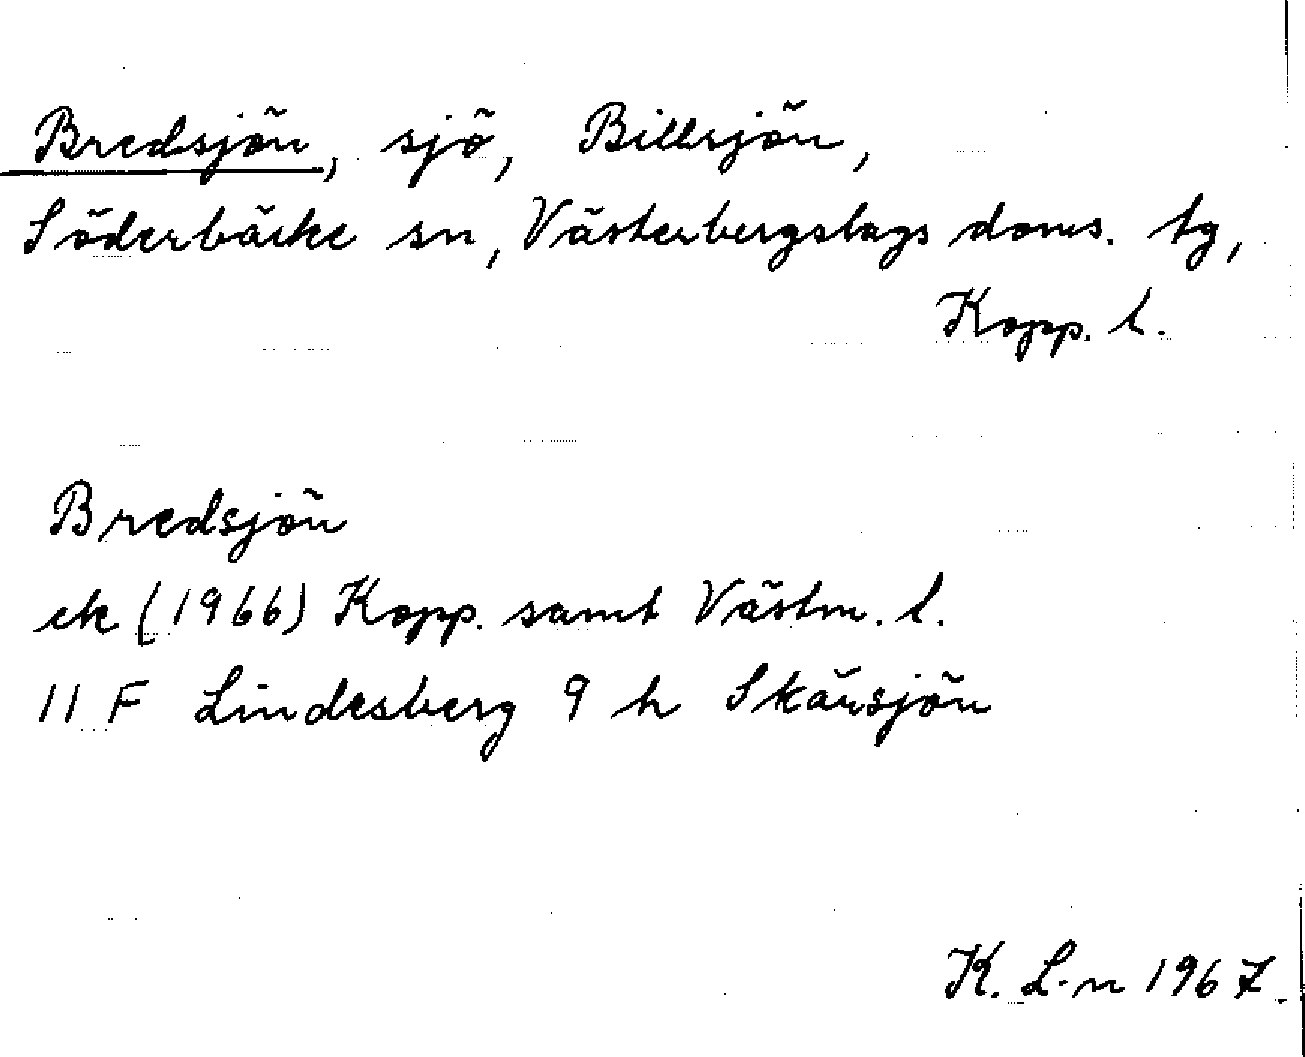 Bredsjön, sjö, Billsjön,
Söderbärke sn, Västerbergslags doms. tg,
Kopp. l.
Bredsjön
ek (1966) Kopp. samt Västm. l.
11 F Lindesberg 9 h Skärsjön
K. L-n 1967.